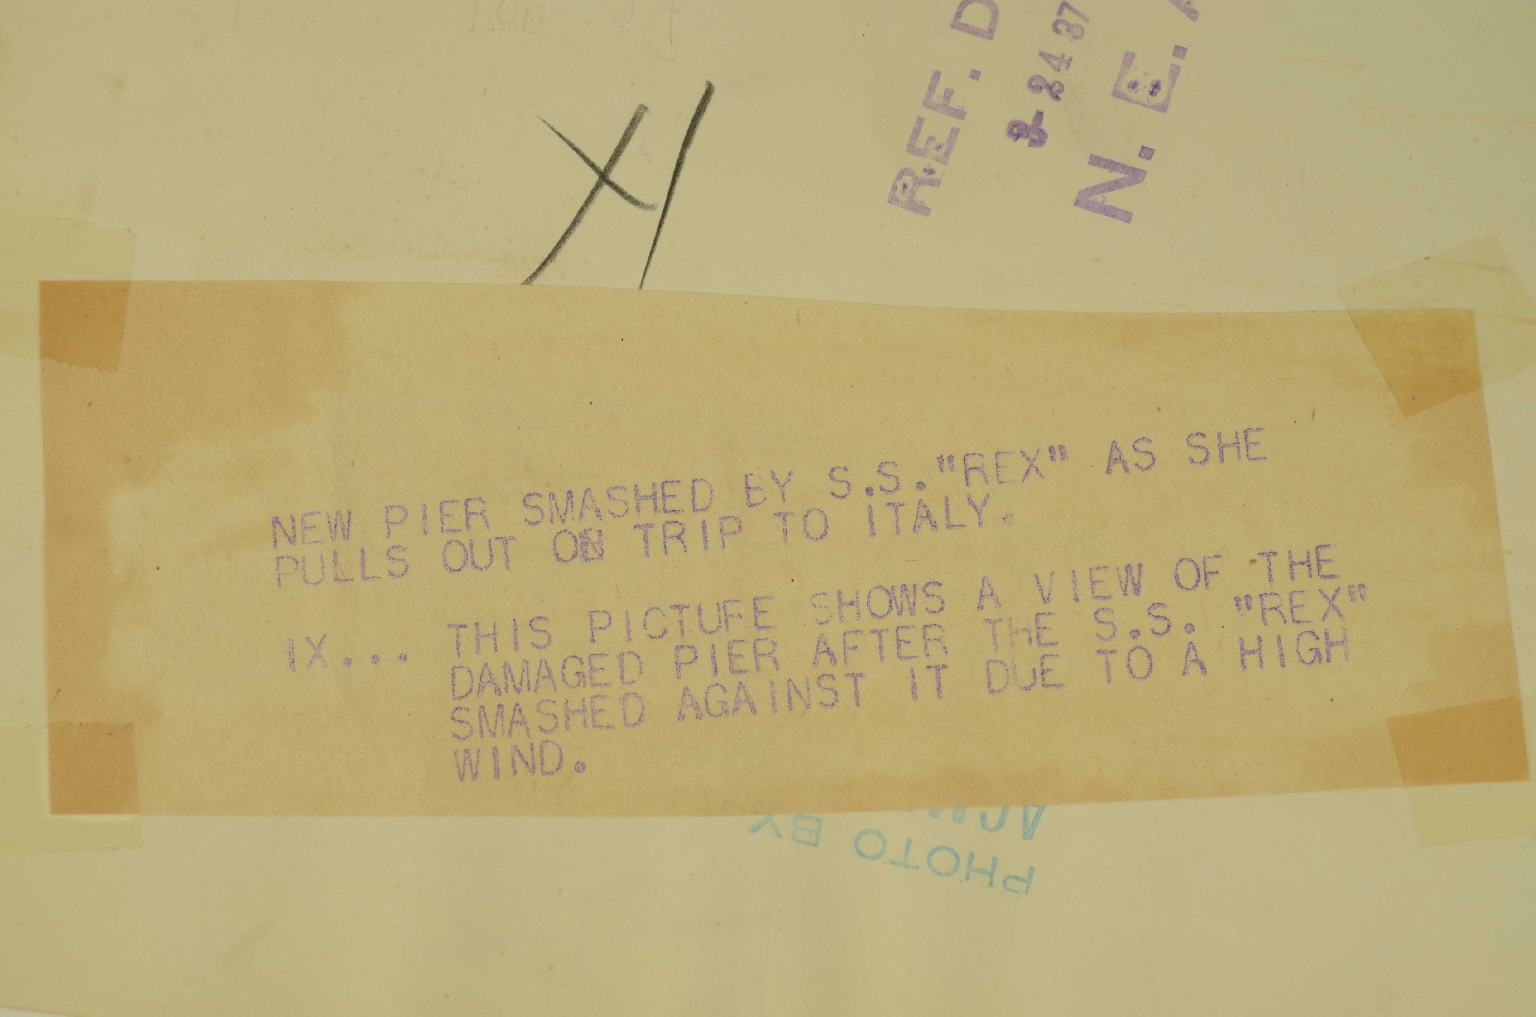 REF. D
3-24 37
N. E. A
NEW PIER SMASHED BY S.S."REX" AS SHE
PULLS OUT ON TRIP TO ITALY.
IX... THIS PICTURE SHOWS A VIEW OF THE
DAMAGED PIER AFTER THE S.S. "REX"
SMASHED AGAINST IT DUE TO A HIGH
WIND.
PHOTO BY